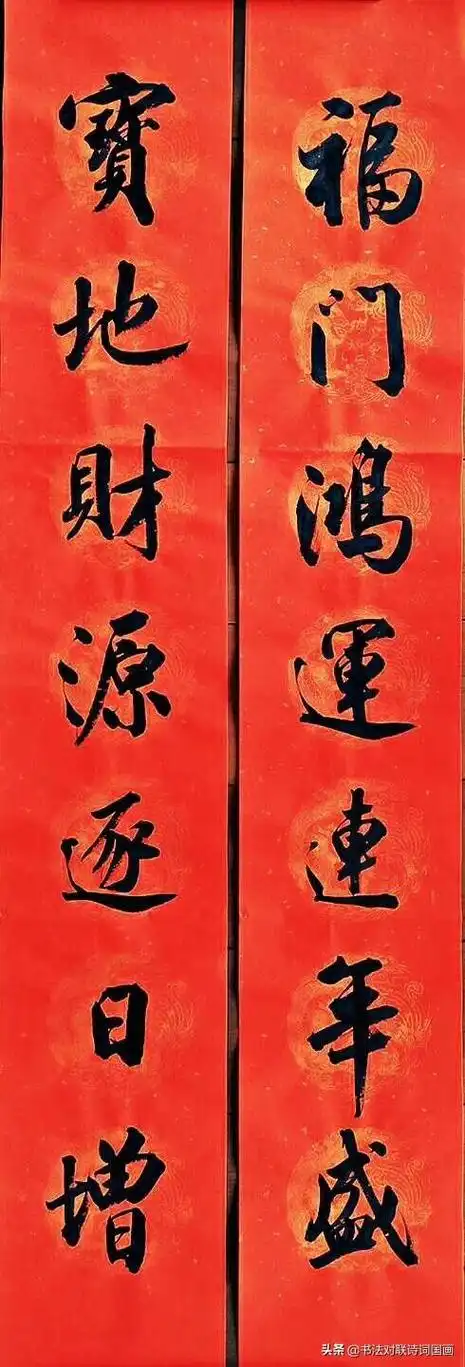 福门鸿運連年盛
寳地財源逐日增
头条 @书法对联诗词国画